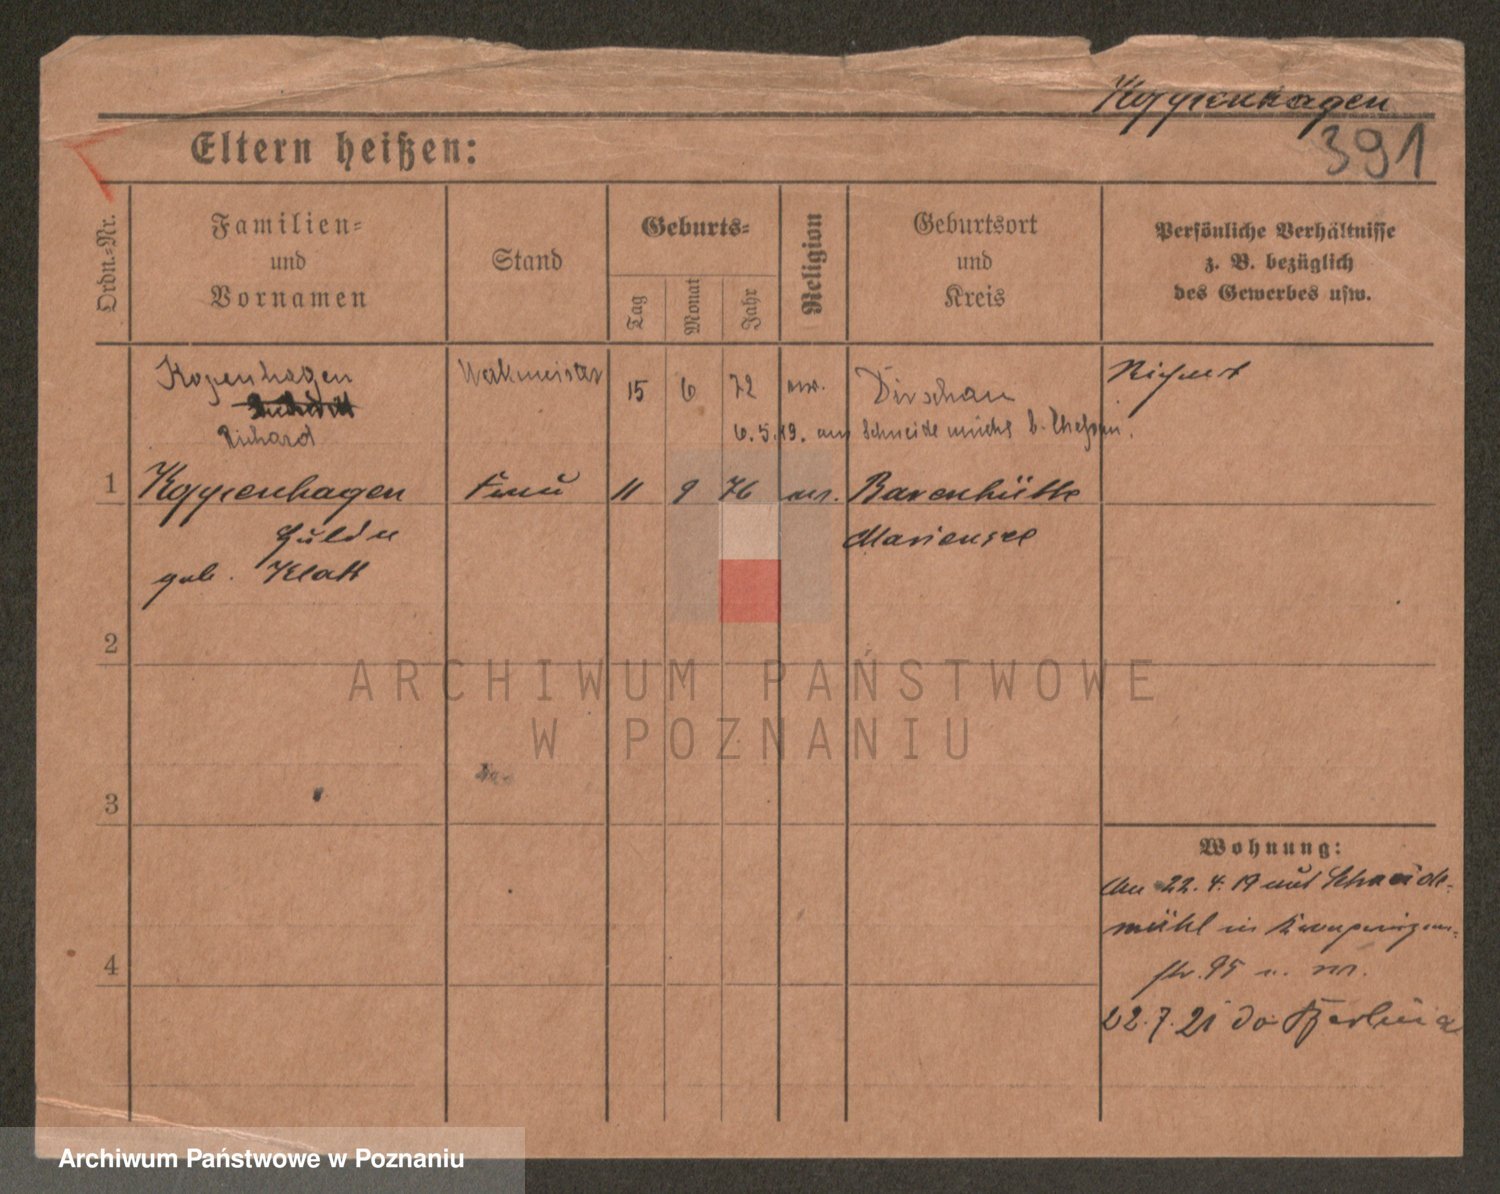 Koppenhagen
391
Eltern heißen:
Ordn.-Nr.
Familien-
und
Vornamen
Stand
Geburts-
Tag
Monat
Jahr
Religion
Geburtsort
und
Kreis
Persönliche Verhältnisse
z. B. bezüglich
des Gewerbes usw.
Kopenhagen Werkmeister 15 6 72 Dirschau
Richard 6.5.19.
1 Koppenhagen Frau 11 9 76 ev. Barenhütte
Hulda Mariensee
geb. Klatt
2
3
4
Wohnung:
Am 22.4.19 aus Schneide-
mühl in
str. 95
22.7.21 do Berlina
ARCHIWUM PAŃSTWOWE
W POZNANIU
Archiwum Państwowe w Poznaniu